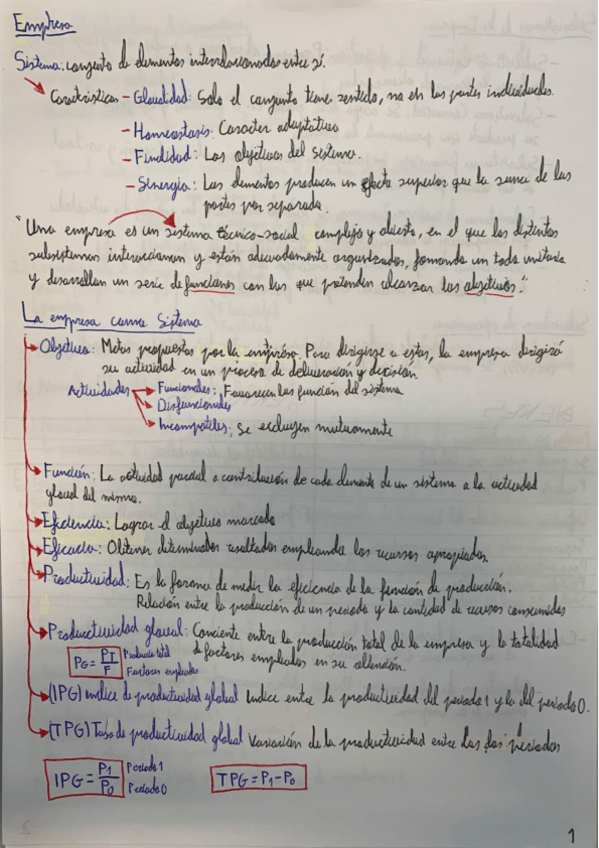 Empresa
Sistema: conjunto de elementos interrelacionados entre sí.
Características - Globalidad: Solo el conjunto tiene sentido, no en las partes individuales.
- Homeostasis: Caracter adaptativo
- Finalidad: Los objetivos del sistema.
- Sinergia: Los elementos producen un efecto superior que la suma de las
partes por separado.
"Una empresa es un sistema técnico-social complejo y abierto, en el que los distintos
subsistemas interaccionan y están adecuadamente organizados, formando un todo unitario
y desarrollan un serie de funciones con las que pretenden alcanzar los objetivos."
La empresa como Sistema
Objetivo: Metas propuestas por la empresa. Para dirigirse a estas, la empresa dirigirá
su actividad en un proceso de deliveración y decisión.
Actividades Funcionales: Favorecen las función del sistema
Disfuncionales
Incompatibles: Se excluyen mutuamente
Función: La actividad parcial o contribución de cada elemento de un sistema a la actividad
global del mismo.
Eficiencia: Lograr el objetivo marcado
Eficacia: Obtener determinados resultados empleando los recursos apropiados.
Productividad: Es la forma de medir la eficiencia de la función de producción.
Relación entre la producción de un periodo y la cantidad de recursos consumidos
Productividad global: Cociente entre la producción total de la empresa y la totalidad
de factores empleados en su obtención.
PG = PT/F Producto total
Factores empleados
(IPG) Indice de productividad global Indice entre la productividad del periodo 1 y la del periodo 0.
(TPG) Tasa de productividad global Variación de la productividad entre los dos periodos
IPG = P1/P0 Periodo 1
Periodo 0
TPG = P1 - P0
1